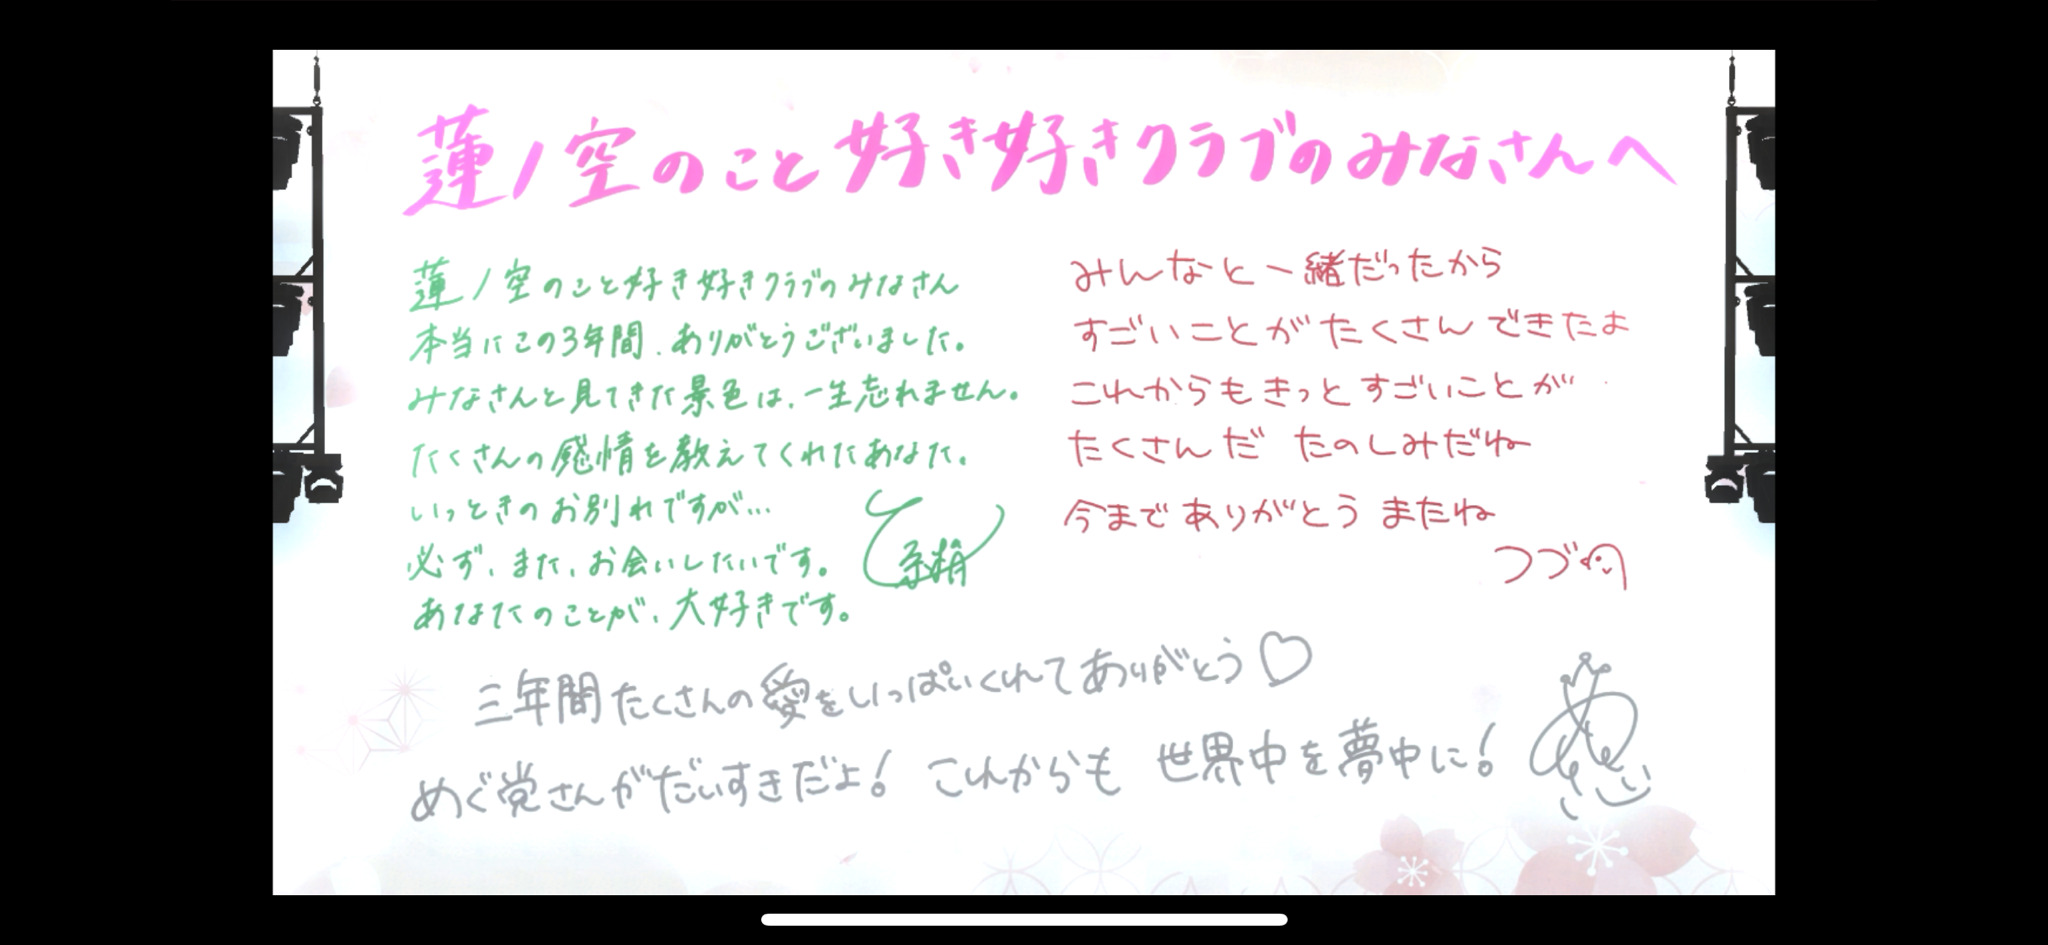 蓮ノ空のこと好き好きクラブのみなさんへ
蓮ノ空のこと好き好きクラブのみなさん
本当にこの3年間、ありがとうございました。
みなさんと見てきた景色は、一生忘れません。
たくさんの感情を教えてくれたあなた。
いっときのお別れですが…
必ず、また、お会いしたいです。
あなたのことが、大好きです。
みんなと一緒だったから
すごいことがたくさんできたよ
これからもきっとすごいことが
たくさんだ たのしみだね
今までありがとう またね
つづ
三年間たくさんの愛をいっぱいくれてありがとう♡
めぐ党さんがだいすきだよ! これからも 世界中を夢中に!